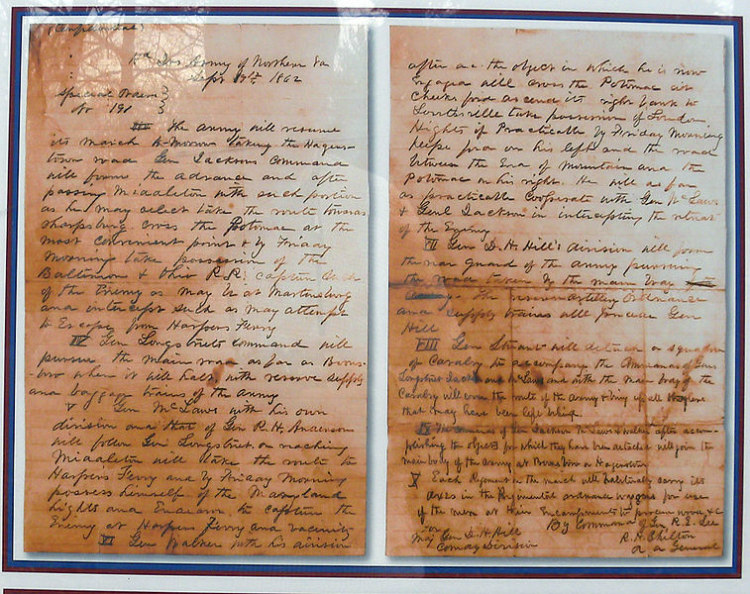 (Confidential)
Hd Qrs Army of Northern Va
Sept 9th 1862
Special Orders
No 191
III The Army will resume
its march to-morrow taking the Hagers-
town road. Gen Jacksons Command
will form the advance and after
passing Middleton with such portion
as he may select take the route towards
Sharpsburg cross the Potomac at the
most convenient point & by Friday
Morning take possession of the
Baltimore & Ohio R.R. capture such
of the Enemy as may be at Martinsburg
and intercept such as may attempt
to Escape from Harpers Ferry
IV Gen Longstreets command will
pursue the Main road as far as Boons-
boro where it will halt, with reserve supply
and baggage trains of the Army
V Gen McLaws with his own
division and that of Gen R. H. Anderson
will follow Gen Longstreet, on reaching
Middleton will take the route to
Harpers Ferry and by Friday Morning
possess himself of the Maryland
hights and Endeavor to capture the
Enemy at Harpers Ferry and vicinity
VI Gen Walker with his division
after acc the object in which he is now
Engaged will cross the Potomac at
Cheeks ford ascend its right bank to
Lovettsville take possession of Loudon
Hights if Practicable by Friday Morning
Keys ford on his left and the road
between the End of Mountain and the
Potomac on his right. He will as far
as practicable Cooperate with Gen McLaws
& Genl Jackson in intercepting the retreat
of the Enemy
VII Gen D. H. Hill's division will form
the rear guard of the Army pursuing
the road taken by the main body
Army. The reserve artillery Ordnance
and supply trains will precede Gen
Hill
VIII Gen Stuart will detach a squadron
of Cavalry to accompany the Commands of Gens
Longstreet Jackson and McLaws and with the main body of the
Cavalry will cover the route of the Army & bring up all stragglers
that may have been left behind
IX The commands of Gen Jackson McLaws & Walker after accom-
plishing the objects for which they have been detached will join the
main body of the army at Boonsboro or Hagerstown
X Each Regiment on the march will habitually carry its
axes in the Regimental ordnance wagons for use
of the men at their Encampments to procure wood &c
By Command of Gen R. E. Lee
For
Maj Gen D. H. Hill
R. H. Chilton
Comdg Division
A A General